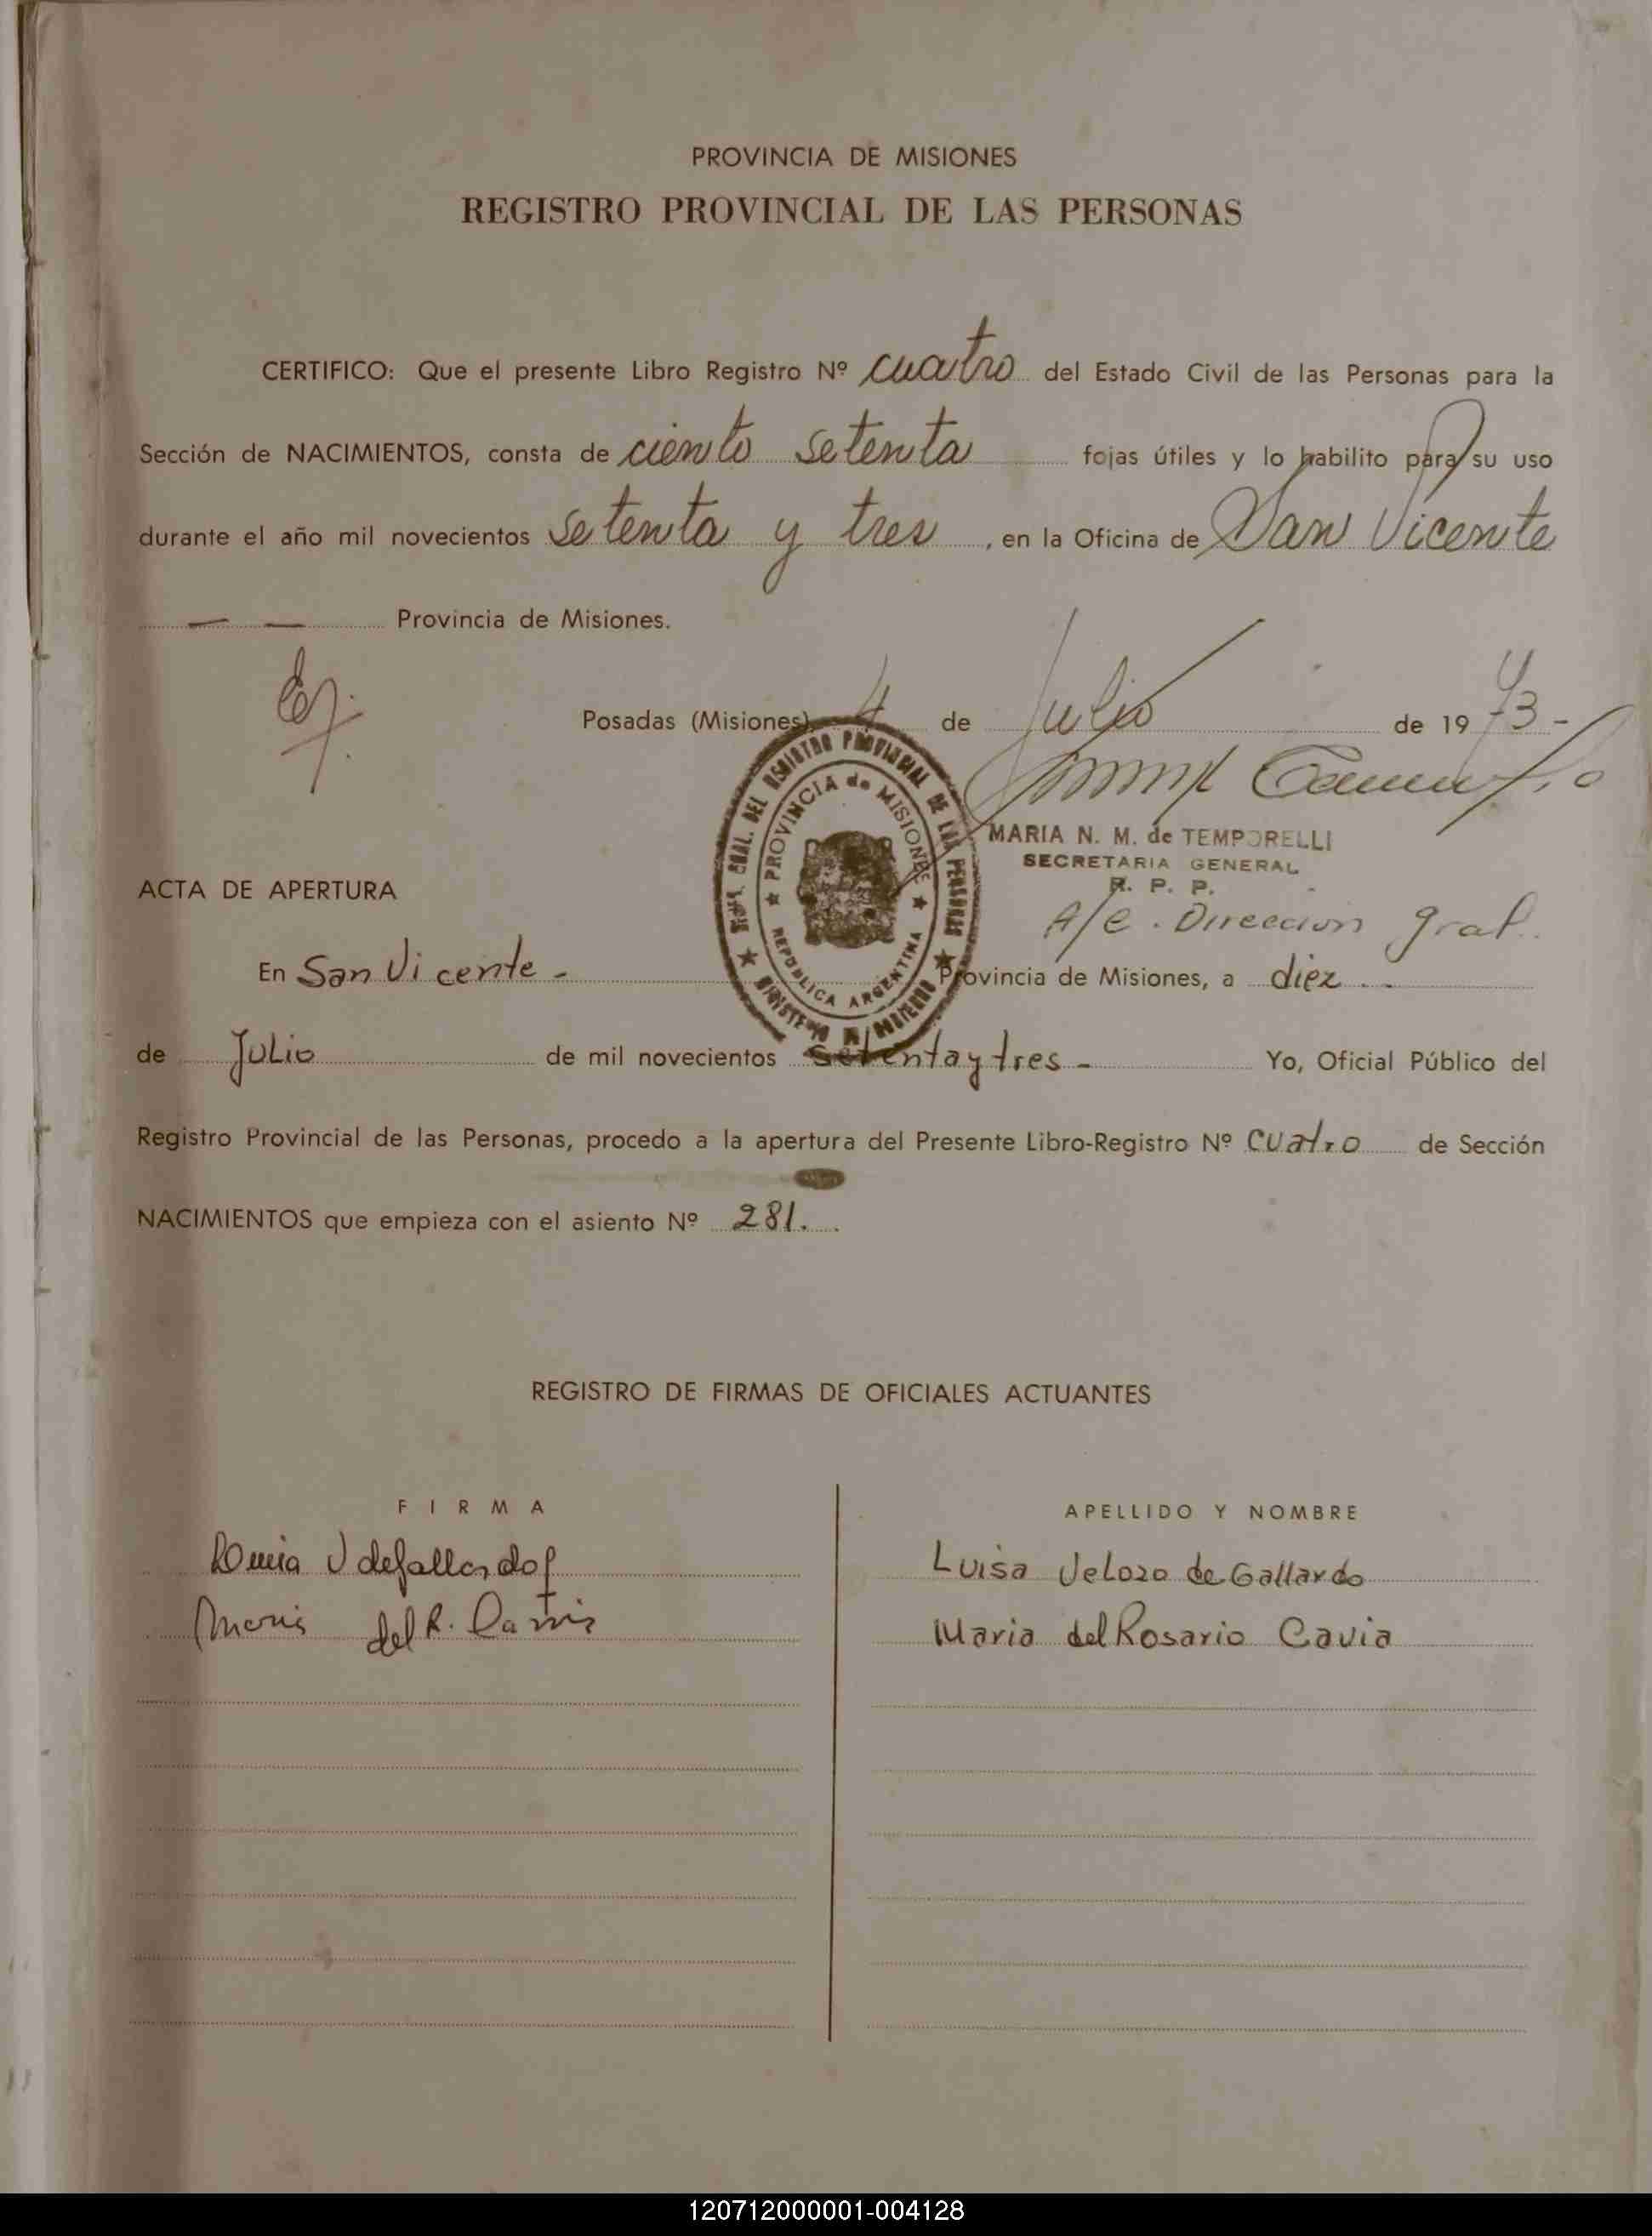 PROVINCIA DE MISIONES
REGISTRO PROVINCIAL DE LAS PERSONAS
CERTIFICO: Que el presente Libro Registro Nº cuatro del Estado Civil de las Personas para la
Sección de NACIMIENTOS, consta de ciento setenta fojas útiles y lo habilito para su uso
durante el año mil novecientos setenta y tres, en la Oficina de San Vicente
— — Provincia de Misiones.
Posadas (Misiones), 4 de Julio de 1973-
REGISTRO PROVINCIAL DE LAS PERSONAS
PROVINCIA de MISIONES
REPUBLICA ARGENTINA
MARIA N. M. de TEMPORELLI
SECRETARIA GENERAL
R. P. P.
A/C. Direccion gral.
ACTA DE APERTURA
En San Vicente - Provincia de Misiones, a diez
de Julio de mil novecientos setenta y tres - Yo, Oficial Público del
Registro Provincial de las Personas, procedo a la apertura del Presente Libro-Registro Nº cuatro de Sección
NACIMIENTOS que empieza con el asiento Nº 281.
REGISTRO DE FIRMAS DE OFICIALES ACTUANTES
FIRMA APELLIDO Y NOMBRE
V de Gallardo Luisa Velozo de Gallardo
Maria del R. Maria del Rosario Cavia
120712000001-004128